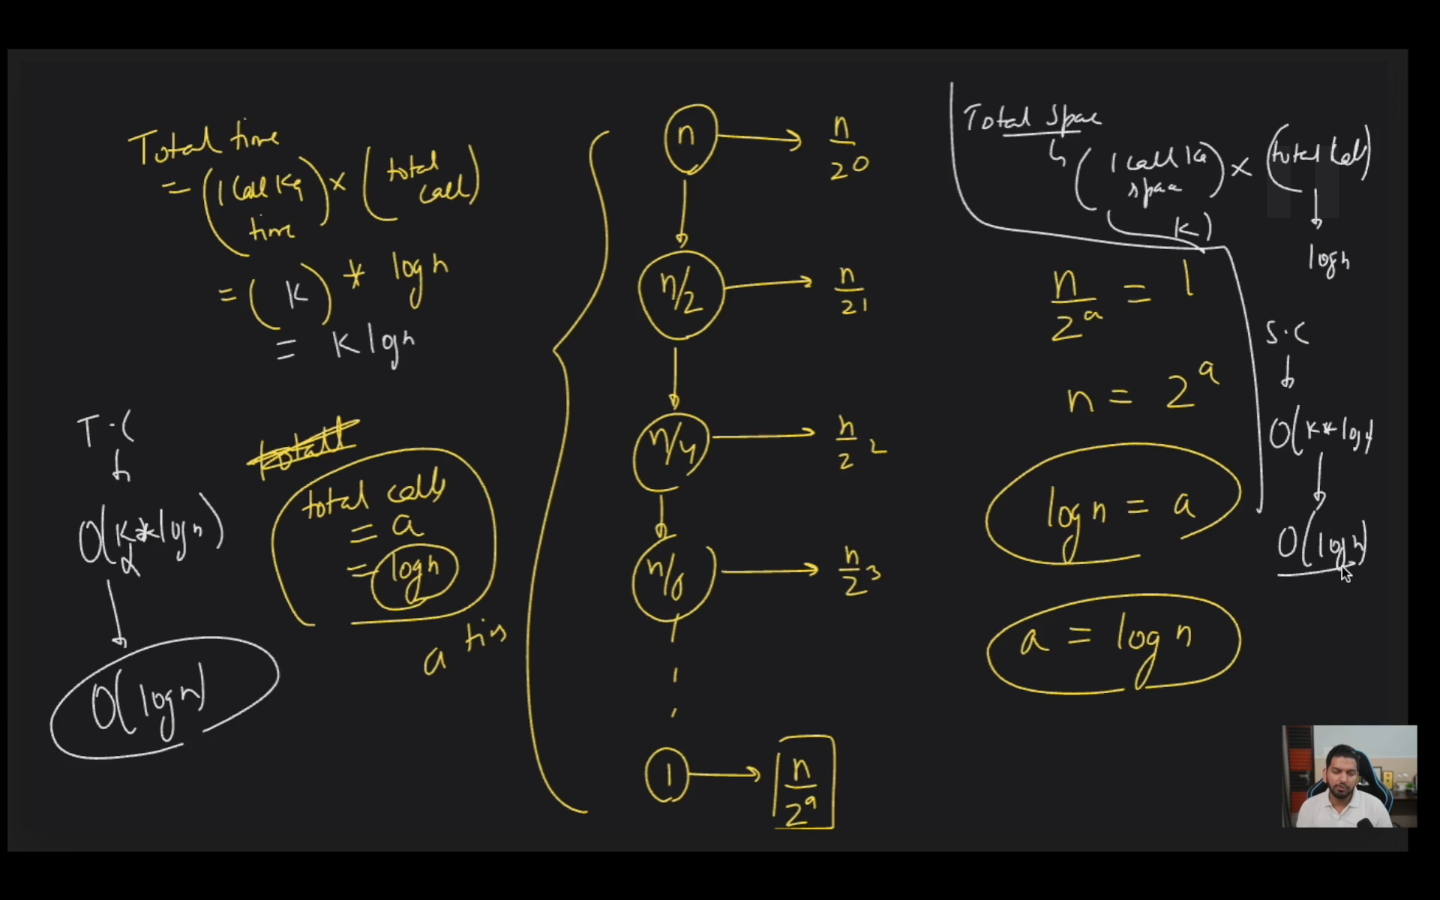 Total time
= (1 Call Ka time) × (total call)
= (K) * log n
= K log n
T.C
O(K * log n)
O(log n)
total calls
= a
= log n
a
n
n/2⁰
n/2
n/2¹
n/4
n/2²
n/2³
1
n/2ᵃ
Total Space
(1 call Ka space) × (total Calls)
K)
log n
n/2ᵃ = 1
n = 2ᵃ
log n = a
a = log n
S.C
O(K * log n)
O(log n)